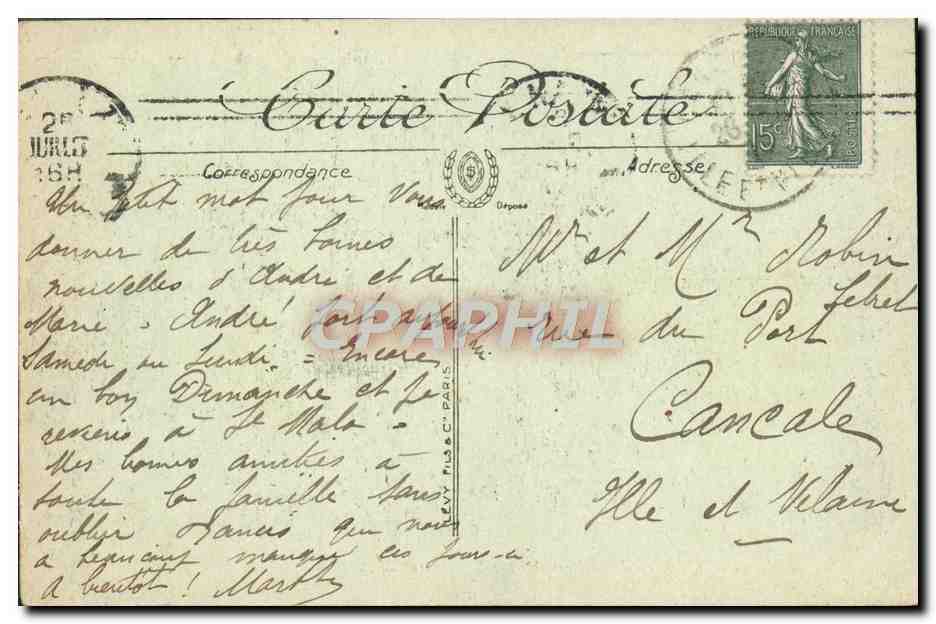 Carte Postale
Correspondance
Adresse
Déposé
RÉPUBLIQUE FRANÇAISE
15c
POSTES
25
16H
26
ILLE ET VI
Un petit mot pour vous
donner de très bonnes
nouvelles d'André et de
Marie. André part
Samedi ou Lundi. Encore
un bon Dimanche et je
reviens à St Malo.
Mes bonnes amitiés à
toute la famille sans
oublier Francis qui nous
a beaucoup manqué ces jours-ci
A bientôt ! Marthe
Mr et Mme Robin
Lebret
Rue du Port
Cancale
Ille et Vilaine
LEVY FILS & Cie PARIS
CPAPHIL